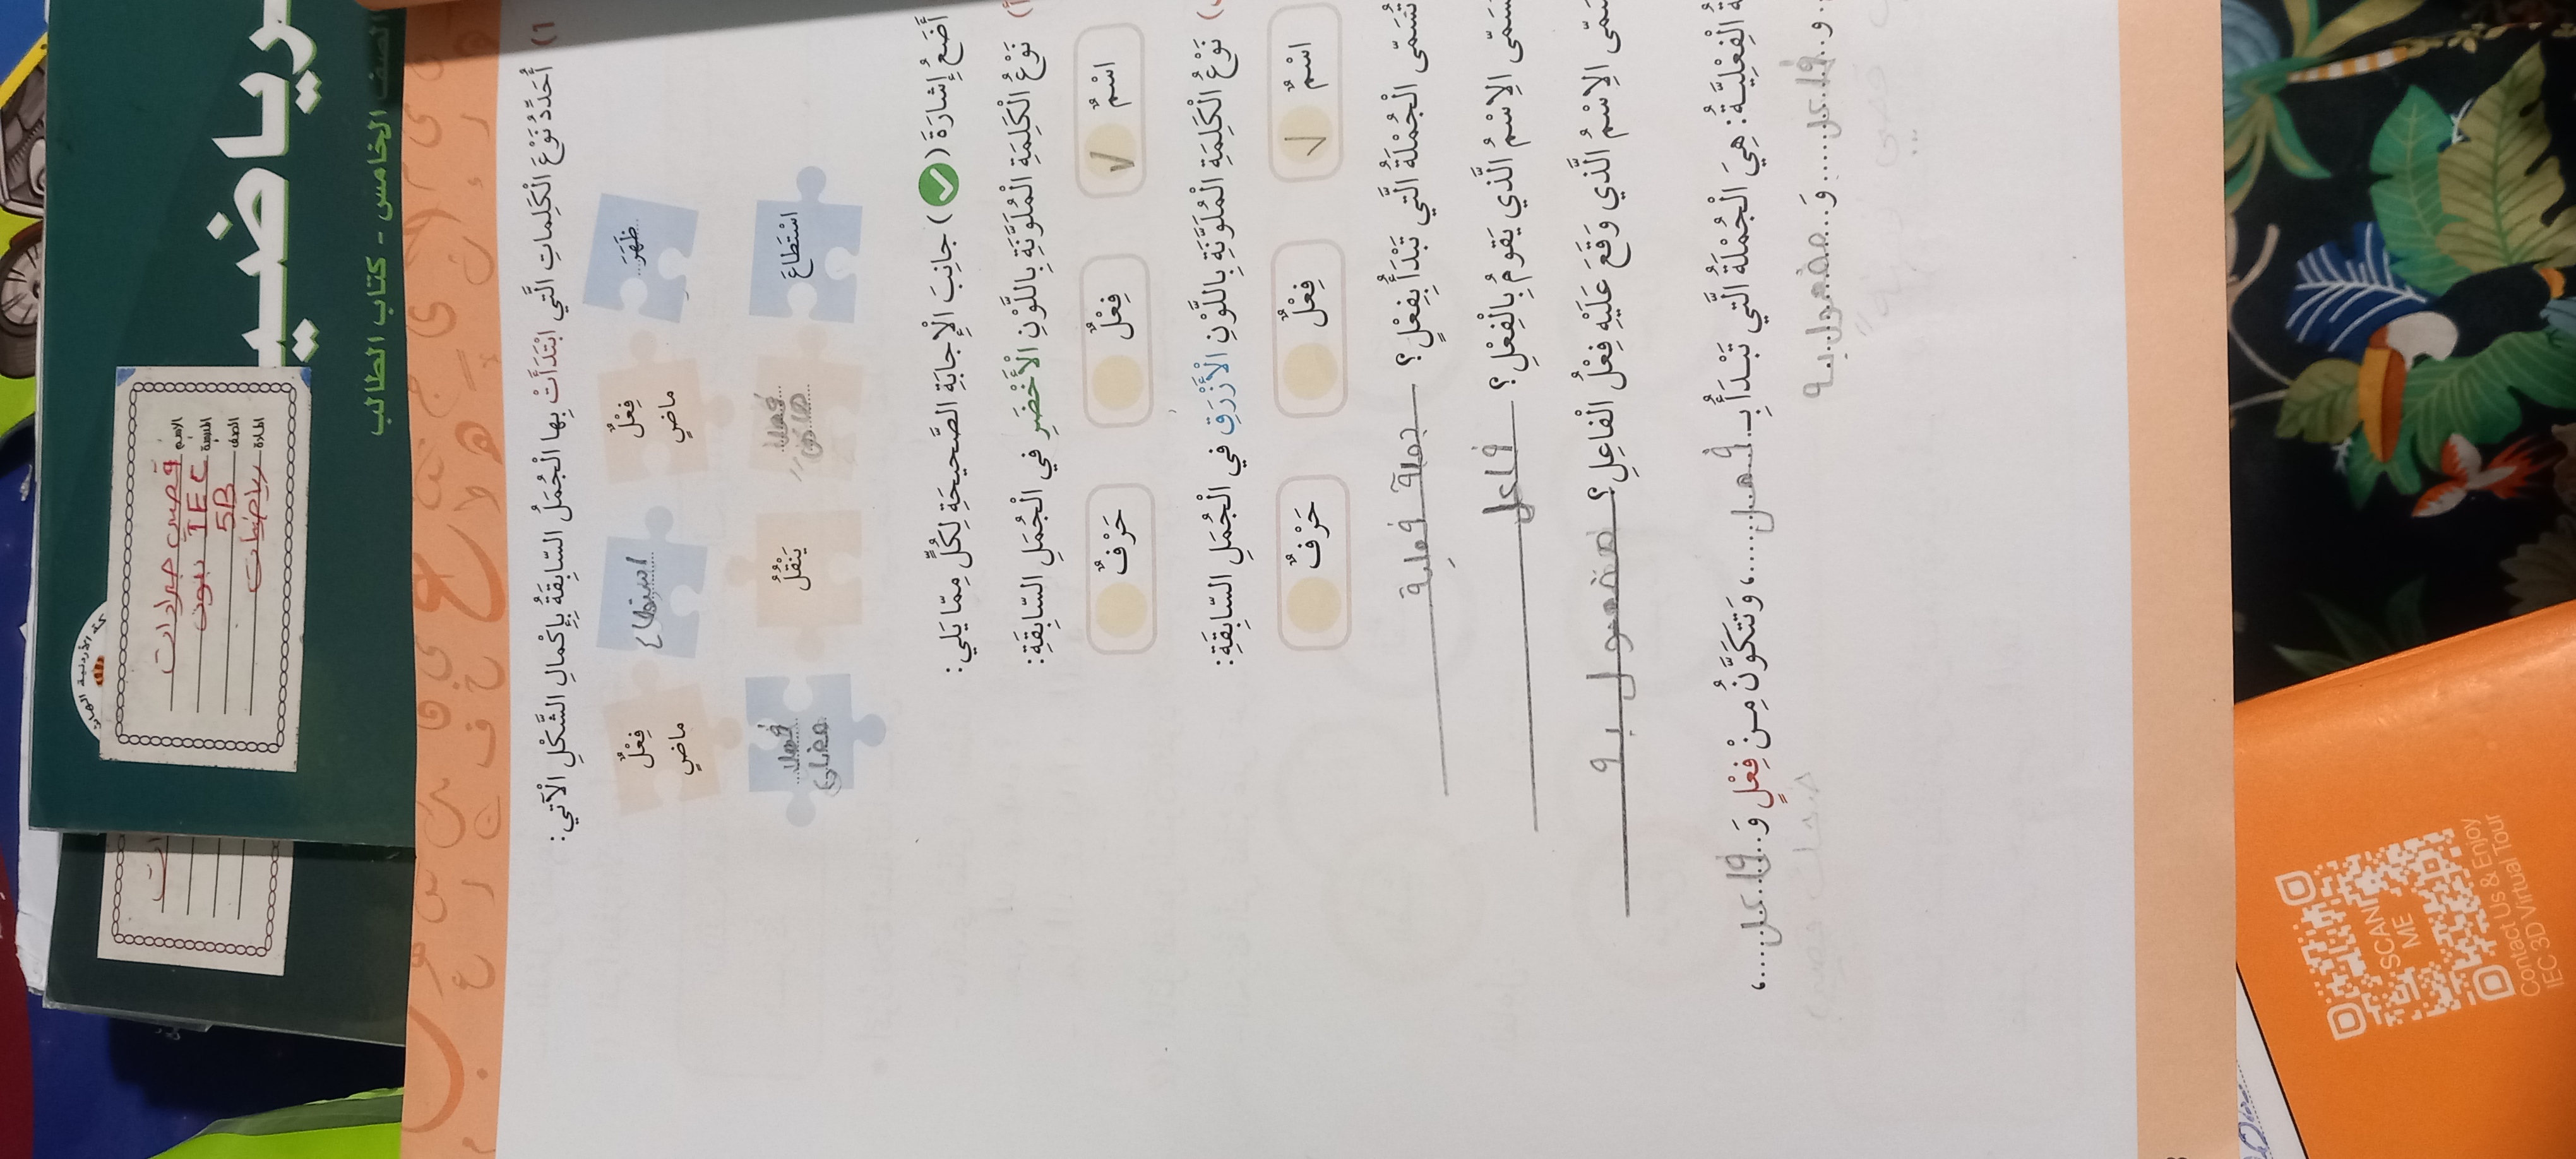 رياضيـ
الصف الخامس - كتاب الطالب
الاسم قصي جرادات
المدرسة IEC بنون
الصف 5B
المادة رياضيات
١) أُحَدِّدُ نَوْعَ الْكَلِماتِ الَّتي ابْتَدَأَتْ بِها الْجُمَلُ السّابِقَةُ بِإِكْمالِ الشَّكْلِ الْآتي:
ظَهَرَ فِعْلٌ ماضٍ استطاع فِعْلٌ ماضٍ
اسْتَطاعَ فعل ماض يَنْقُلُ فعل
أَضَعُ إِشارَةَ (✓) جانِبَ الْإِجابَةِ الصَّحيحَةِ لِكُلٍّ مِمّا يَلي:
أ) نَوْعُ الْكَلِمَةِ الْمُلَوَّنَةِ بِاللَّوْنِ الْأَخْضَرِ في الْجُمَلِ السّابِقَةِ:
✓ اسْمٌ فِعْلٌ حَرْفٌ
نَوْعُ الْكَلِمَةِ الْمُلَوَّنَةِ بِاللَّوْنِ الْأَزْرَقِ في الْجُمَلِ السّابِقَةِ:
✓ اسْمٌ فِعْلٌ حَرْفٌ
تُسَمّى الْجُمْلَةُ الَّتي تَبْدَأُ بِفِعْلٍ؟ جملة فعلية
الِاسْمُ الَّذي يَقومُ بِالْفِعْلِ؟ فاعل
الِاسْمُ الَّذي وَقَعَ عَلَيْهِ فِعْلُ الْفاعِلِ؟ مفعول به
الْفِعْلِيَّةُ: هِيَ الْجُمْلَةُ الَّتي تَبْدَأُ بِـ فعل، وَتَتَكَوَّنُ مِنْ فِعْلٍ وَ فاعل،
و فاعل وَ مفعول به
SCAN ME
Contact Us & Enjoy
IEC 3D Virtual Tour